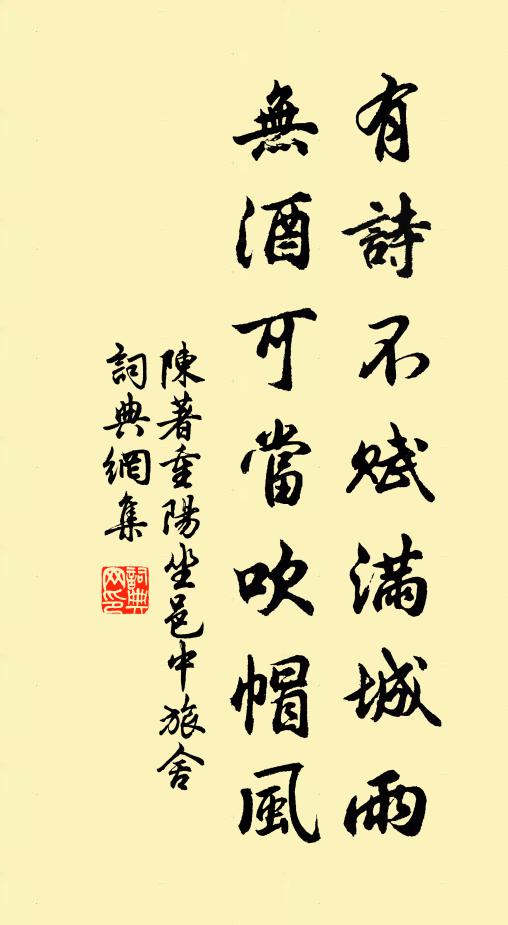 有詩不賦滿城雨
無酒可當吹帽風
陳著重陽坐邑中旅舍
詞典網集
詞典
网印